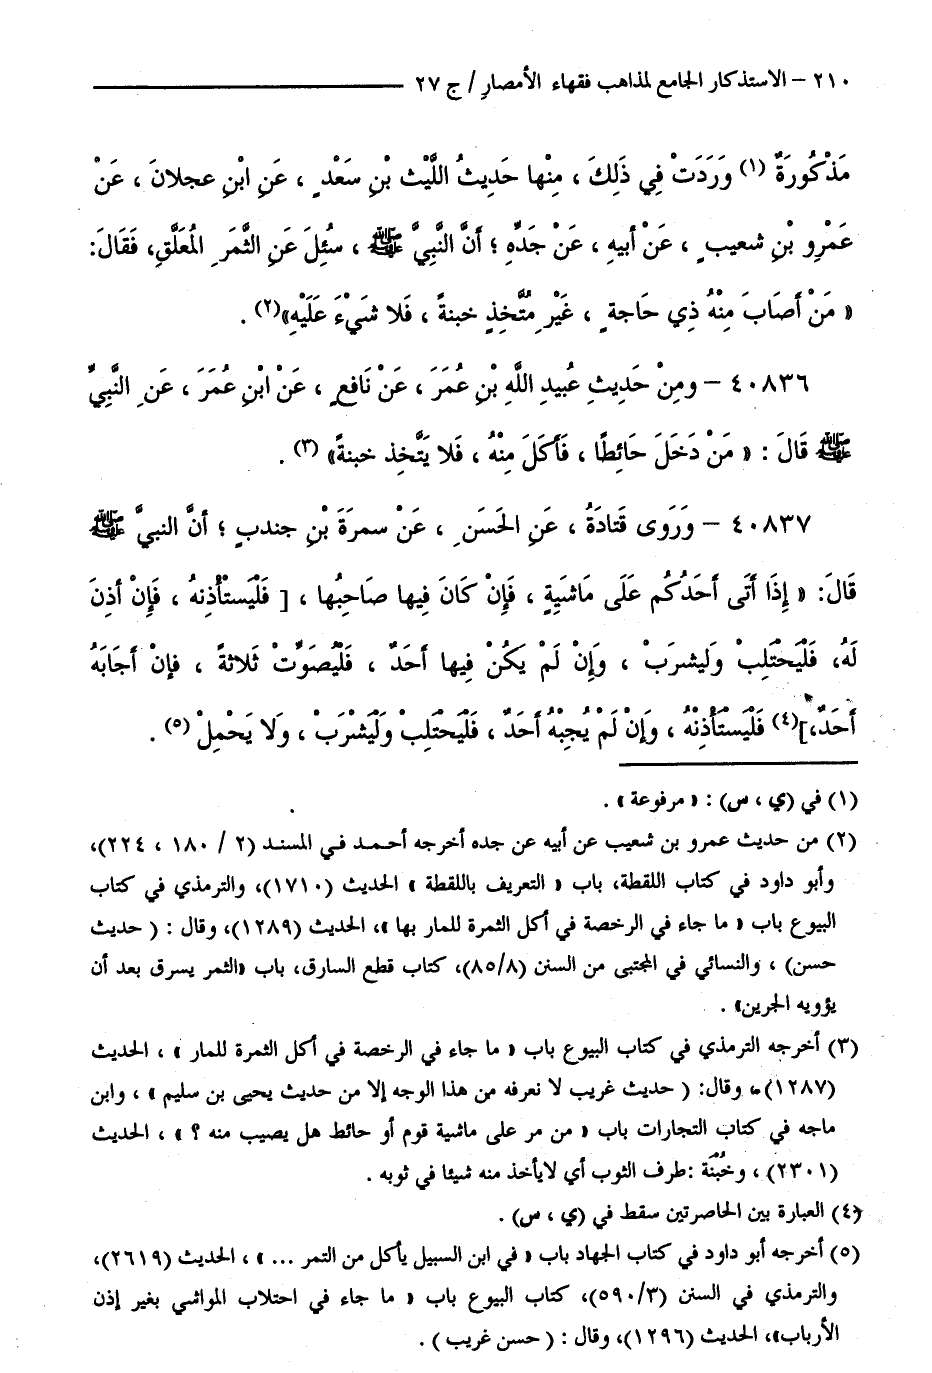 ٢١٠ – الاستذكار الجامع لمذاهب فقهاء الأمصارِ / ج ٢٧
مَذْكُورَةٌ (١) وَرَدَتْ فِي ذَلِكَ ، مِنْها حَدِيثُ اللَّيْث بْنِ سَعْدٍ ، عَنِ ابْنِ عجلانَ ، عَنْ
عَمْرِو بْنِ شعيبٍ ، عَنْ أبيهِ ، عَنْ جَدِّهِ ؛ أنَّ النَّبِيَّ ﷺ ، سُئِلَ عَنِ الثَّمَرِ المُعَلَّقِ، فَقَالَ:
« مَنْ أصَابَ مِنْهُ ذِي حَاجةٍ ، غَيْرِ مُتَّخِذٍ خبنةً ، فَلا شَيْءَ عَلَيْهِ»(٢) .
٤٠٨٣٦ – ومِنْ حَدِيثِ عُبيدِ اللَّهِ بْنِ عُمَرَ ، عَنْ نَافعٍ ، عَنْ ابْنِ عُمَرَ ، عَنِ النَّبِيِّ
ﷺ قَالَ : « مَنْ دَخَلَ حَائِطًا ، فَأكَلَ مِنْهُ ، فَلا يَتَّخِذ خبنةً» (٣) .
٤٠٨٣٧ – وَرَوى قَتادَةُ ، عَنِ الحَسَنِ ، عَنْ سمرَةَ بْنِ جندبٍ ؛ أنَّ النبيَّ ﷺ
قَالَ: « إِذَا أَتَى أَحَدُكُم عَلَى مَاشيَةٍ ، فَإِنْ كَانَ فِيها صَاحِبُها ، [ فَلْيَستْأذِنهُ ، فَإِنْ أذِنَ
لَهُ، فَلْيَحْتَلِبْ وَليشرَبْ ، وَإِنْ لَمْ يَكُنْ فِيها أَحَدٌ ، فَلْيُصَوِّتْ ثَلاثةً ، فإنْ أجَابَهُ
أَحَدٌ،](٤) فَلْيَسْتَأْذِنْهُ ، وَإِنْ لَمْ يُجِبْهُ أَحَدٌ ، فَلْيَحْتَلِبْ وَلْيَشْرَبْ ، وَلا يَحْمِلْ (٥) .
(١) في (ي ، س) : « مرفوعة » .
(٢) من حديث عمرو بن شعيب عن أبيه عن جده أخرجه أحمد في المسند (٢ / ١٨٠ ، ٢٢٤)،
وأبو داود في كتاب اللقطة، باب « التعريف باللقطة » الحديث (١٧١٠)، والترمذي في كتاب
البيوع باب « ما جاء في الرخصة في أكل الثمرة للمار بها »، الحديث (١٢٨٩)، وقال : ( حديث
حسن) ، والنسائي في المجتبى من السنن (٨٥/٨)، كتاب قطع السارق، باب «الثمر يسرق بعد أن
يؤويه الجرين» .
(٣) أخرجه الترمذي في كتاب البيوع باب « ما جاء في الرخصة في أكل الثمرة للمار » ، الحديث
(١٢٨٧)، وقال: ( حديث غريب لا نعرفه من هذا الوجه إلا من حديث يحيى بن سليم » ، وابن
ماجه في كتاب التجارات باب « من مر على ماشية قوم أو حائط هل يصيب منه ؟ » ، الحديث
(٢٣٠١) ، وخُبْنَة :طرف الثوب أي لايأخذ منه شيئا في ثوبه .
(٤) العبارة بين الحاصرتين سقط في (ي ، س) .
(٥) أخرجه أبو داود في كتاب الجهاد باب « في ابن السبيل يأكل من التمر ... » ، الحديث (٢٦١٩)،
والترمذي في السنن (٥٩٠/٣)، كتاب البيوع باب « ما جاء في احتلاب المواشي بغير إذن
الأرباب»، الحديث (١٢٩٦)، وقال : ( حسن غريب ) .